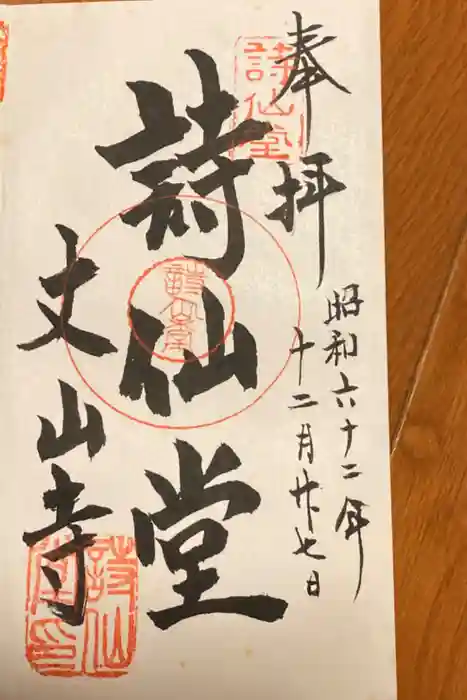 奉拝
詩仙堂
昭和六十二年
十二月廿七日
詩仙堂
丈山寺
詩仙堂
詩仙堂印